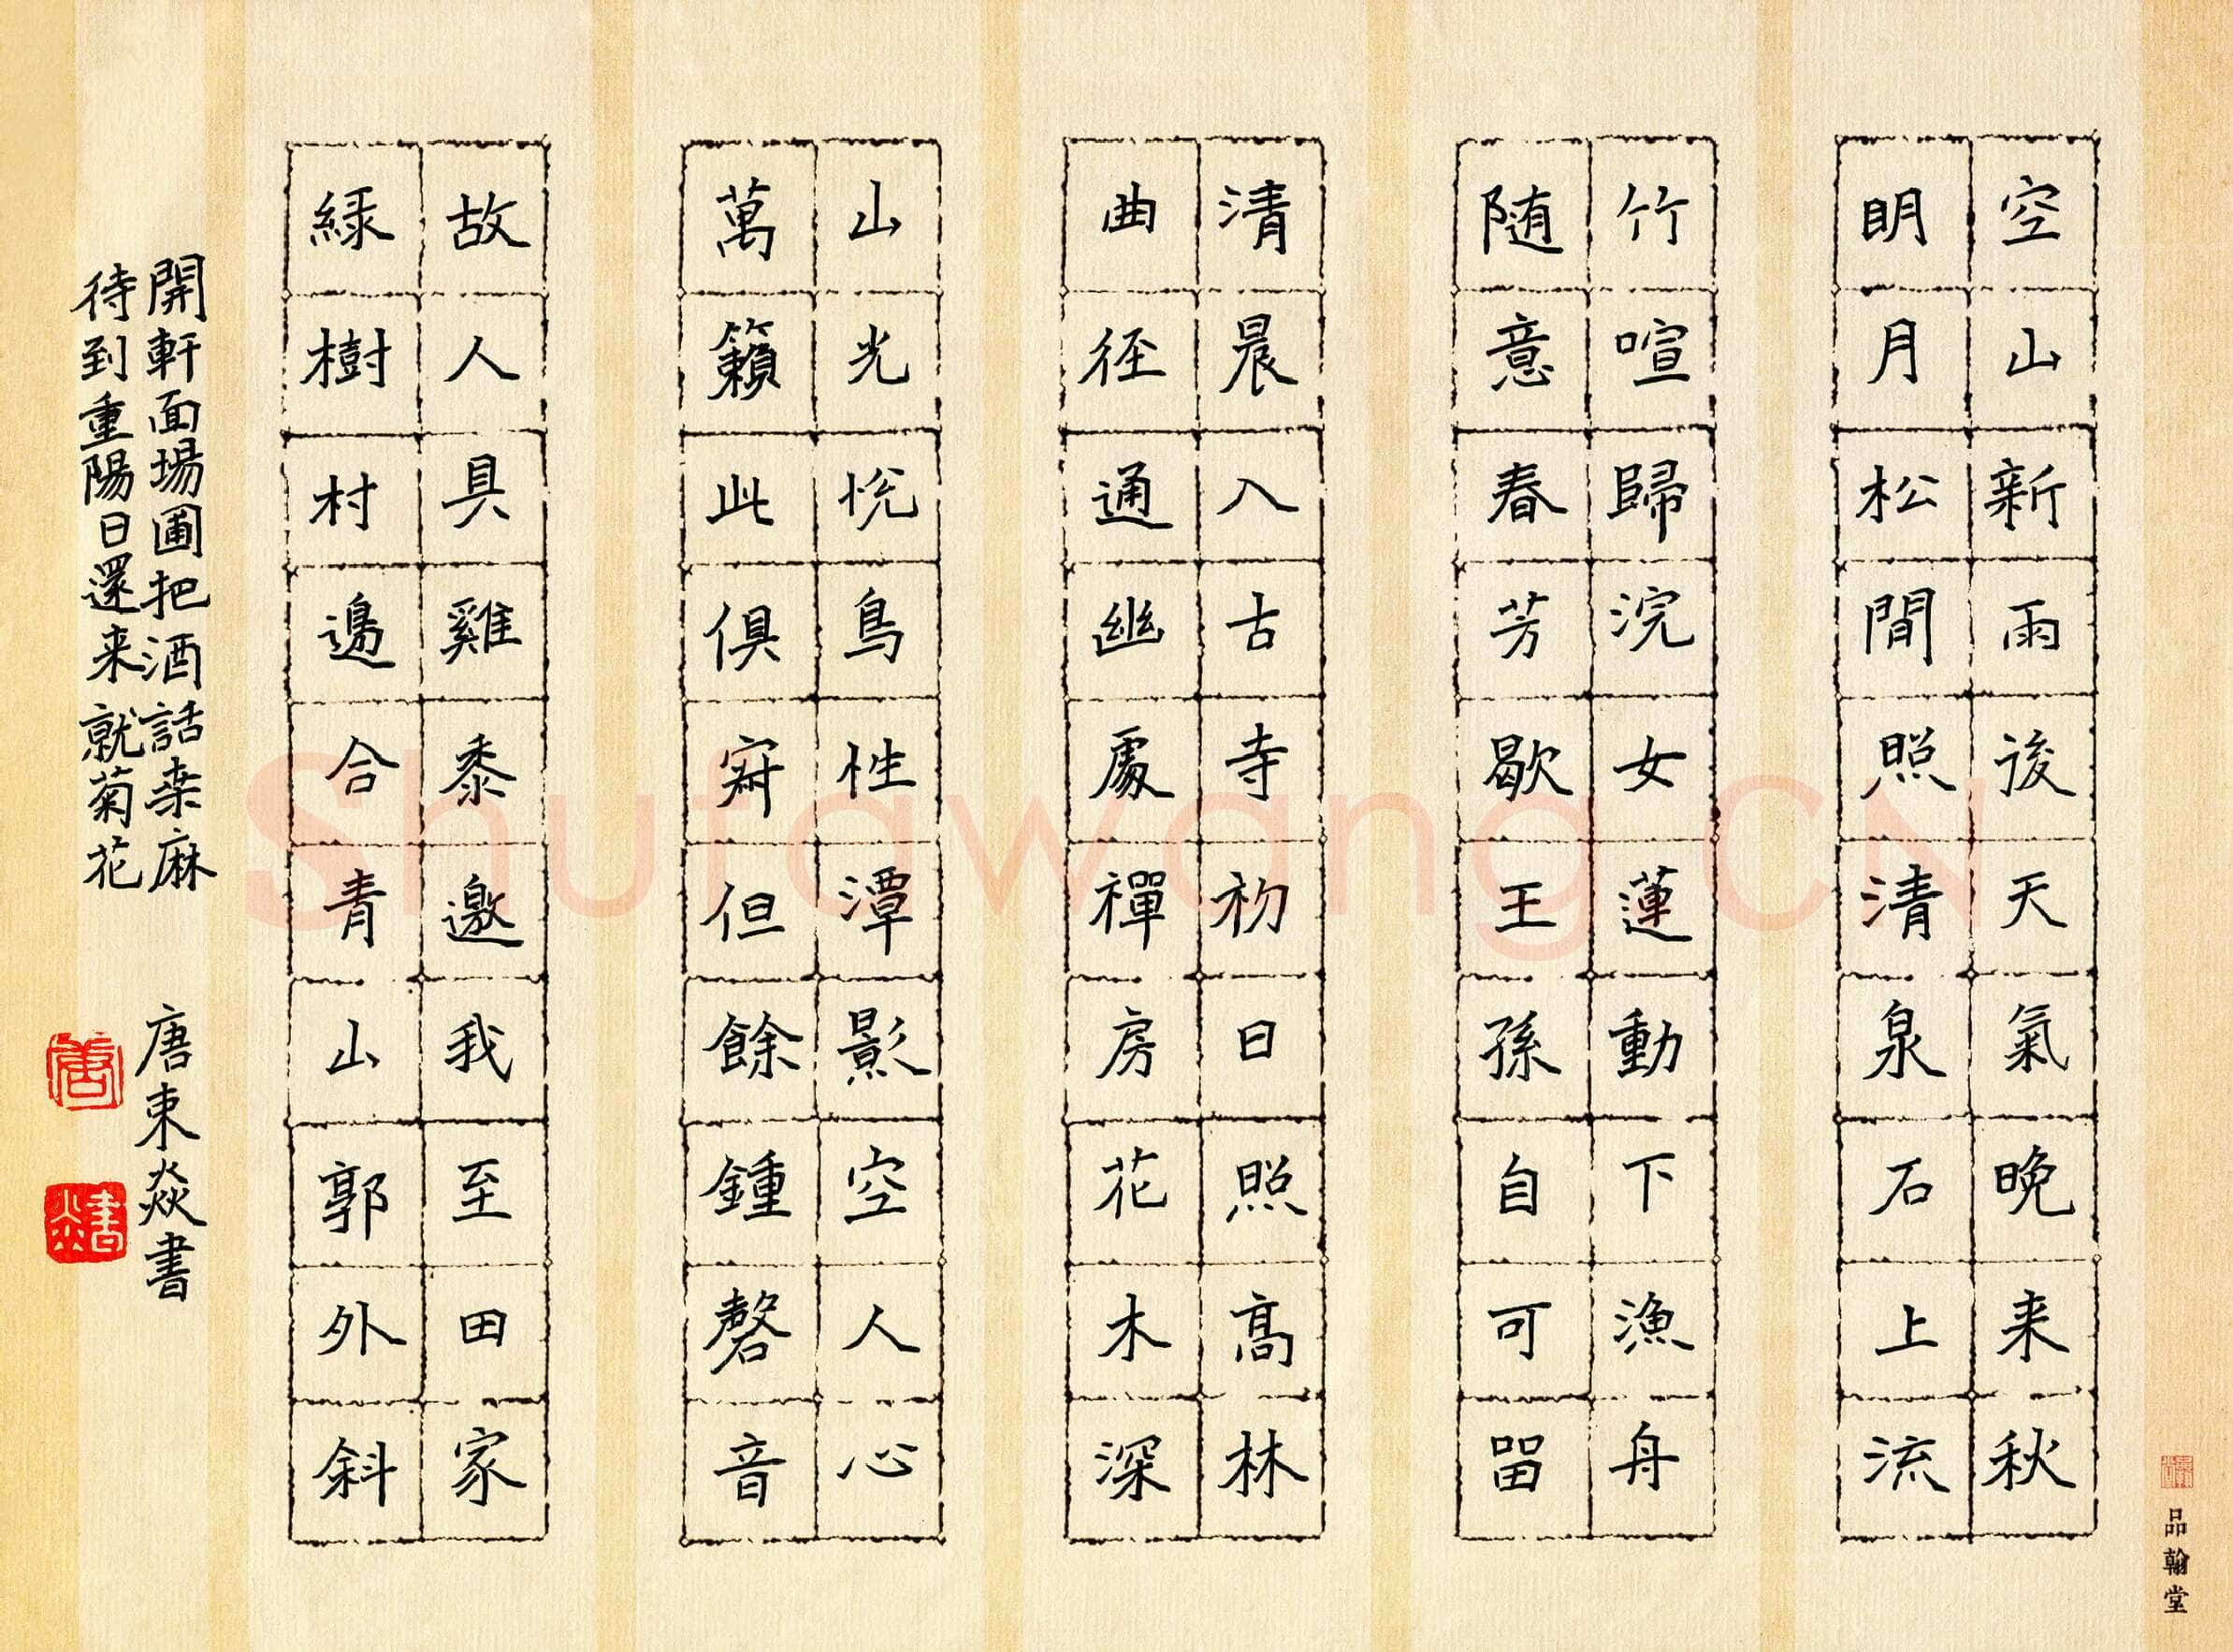 空山新雨後天氣晚来秋
明月松間照清泉石上流
竹喧歸浣女蓮動下漁舟
随意春芳歇王孫自可留
清晨入古寺初日照高林
曲徑通幽處禪房花木深
山光悅鳥性潭影空人心
萬籟此俱寂但餘鍾磬音
故人具雞黍邀我至田家
緑樹村邊合青山郭外斜
開軒面場圃把酒話桑麻
待到重陽日還来就菊花
唐東焱書
品翰堂
Shufawang.CN